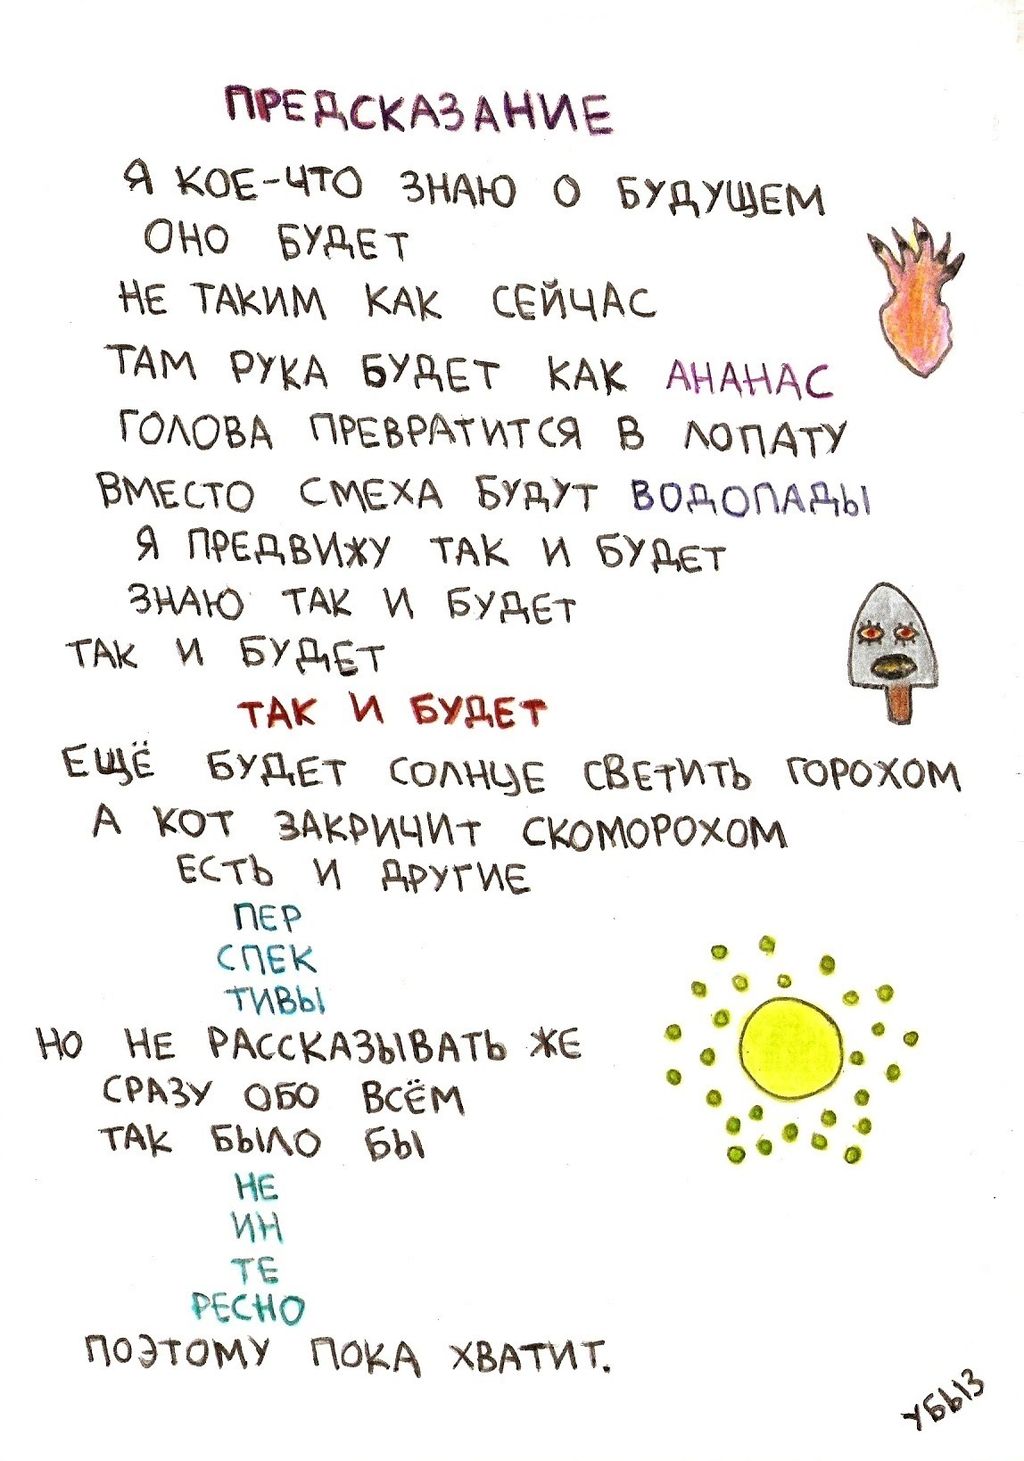 ПРЕДСКАЗАНИЕ
Я КОЕ-ЧТО ЗНАЮ О БУДУЩЕМ
ОНО БУДЕТ
НЕ ТАКИМ КАК СЕЙЧАС
ТАМ РУКА БУДЕТ КАК АНАНАС
ГОЛОВА ПРЕВРАТИТСЯ В ЛОПАТУ
ВМЕСТО СМЕХА БУДУТ ВОДОПАДЫ
Я ПРЕДВИЖУ ТАК И БУДЕТ
ЗНАЮ ТАК И БУДЕТ
ТАК И БУДЕТ
ТАК И БУДЕТ
ЕЩЁ БУДЕТ СОЛНЦЕ СВЕТИТЬ ГОРОХОМ
А КОТ ЗАКРИЧИТ СКОМОРОХОМ
ЕСТЬ И ДРУГИЕ
ПЕР
СПЕК
ТИВЫ
НО НЕ РАССКАЗЫВАТЬ ЖЕ
СРАЗУ ОБО ВСЁМ
ТАК БЫЛО БЫ
НЕ
ИН
ТЕ
РЕСНО
ПОЭТОМУ ПОКА ХВАТИТ.
УБЫЗ